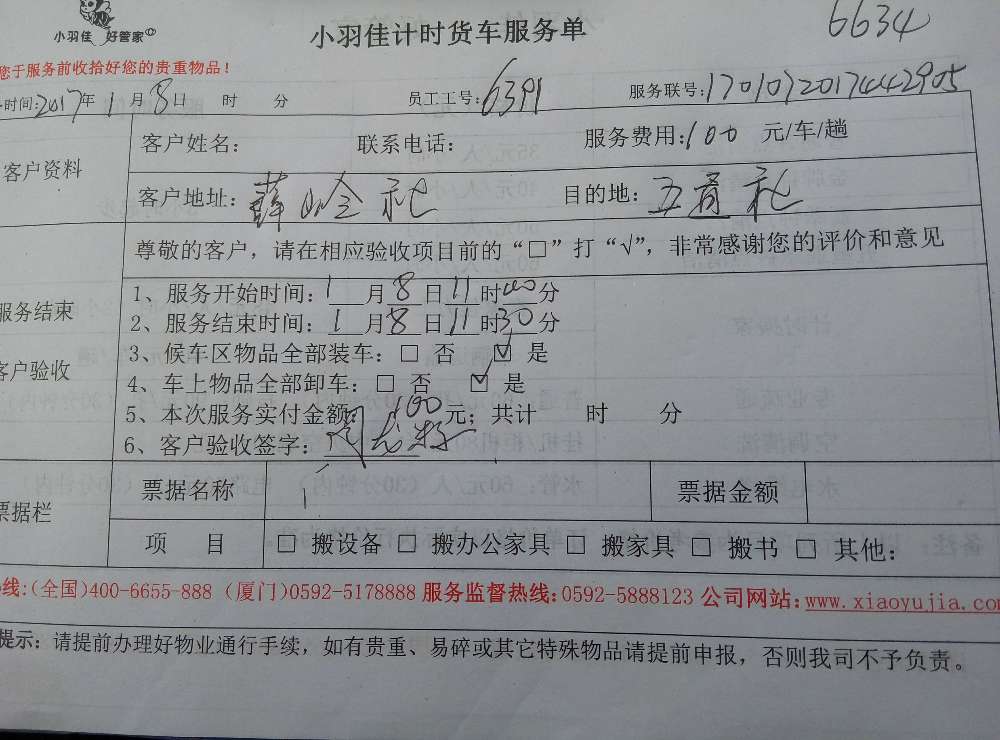 6634
小羽佳 好管家
小羽佳计时货车服务单
您于服务前收拾好您的贵重物品！
时间:2017年1月8日 时 分 员工工号:6391 服务联号:1701072017442905
客户资料
客户姓名: 联系电话: 服务费用:100 元/车/趟
客户地址:薛岭社 目的地:五通社
尊敬的客户，请在相应验收项目前的“□”打“√”，非常感谢您的评价和意见
服务结束
客户验收
1、服务开始时间:1月8日11时00分
2、服务结束时间:1月8日11时30分
3、候车区物品全部装车:□ 否 ☑ 是
4、车上物品全部卸车:□ 否 ☑ 是
5、本次服务实付金额100元；共计 时 分
6、客户验收签字:
票据栏
票据名称 票据金额
项 目 □ 搬设备 □ 搬办公家具 □ 搬家具 □ 搬书 □ 其他:
线:(全国)400-6655-888 (厦门)0592-5178888 服务监督热线:0592-5888123 公司网站:www.xiaoyujia.com
提示: 请提前办理好物业通行手续，如有贵重、易碎或其它特殊物品请提前申报，否则我司不予负责。